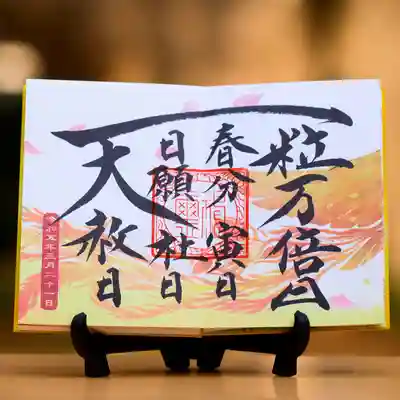 一粒万倍日
春分 寅日
日願 社日
天赦日
令和五年三月二十一日